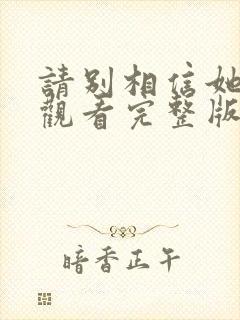 請別相信她
觀看完整版
暗香正午